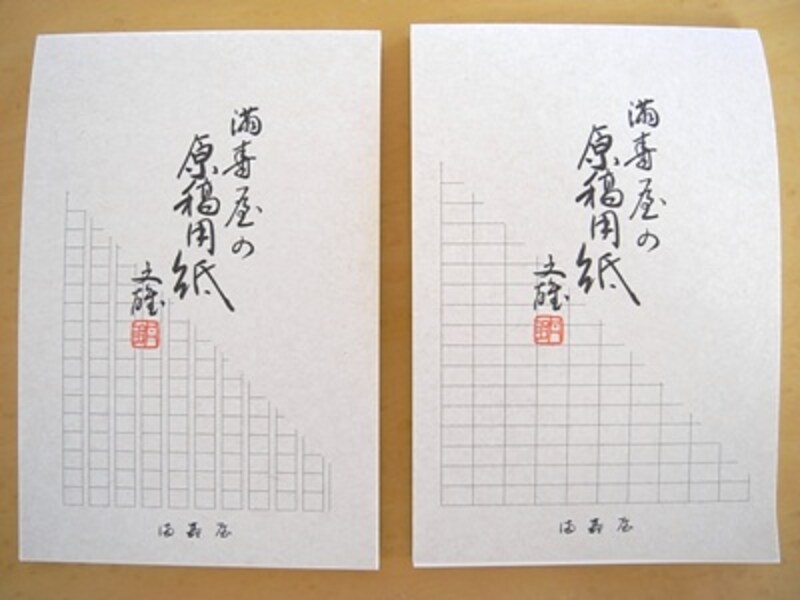 満寿屋の
原稿用紙
文雄
満寿屋
満寿屋の
原稿用紙
文雄
満寿屋